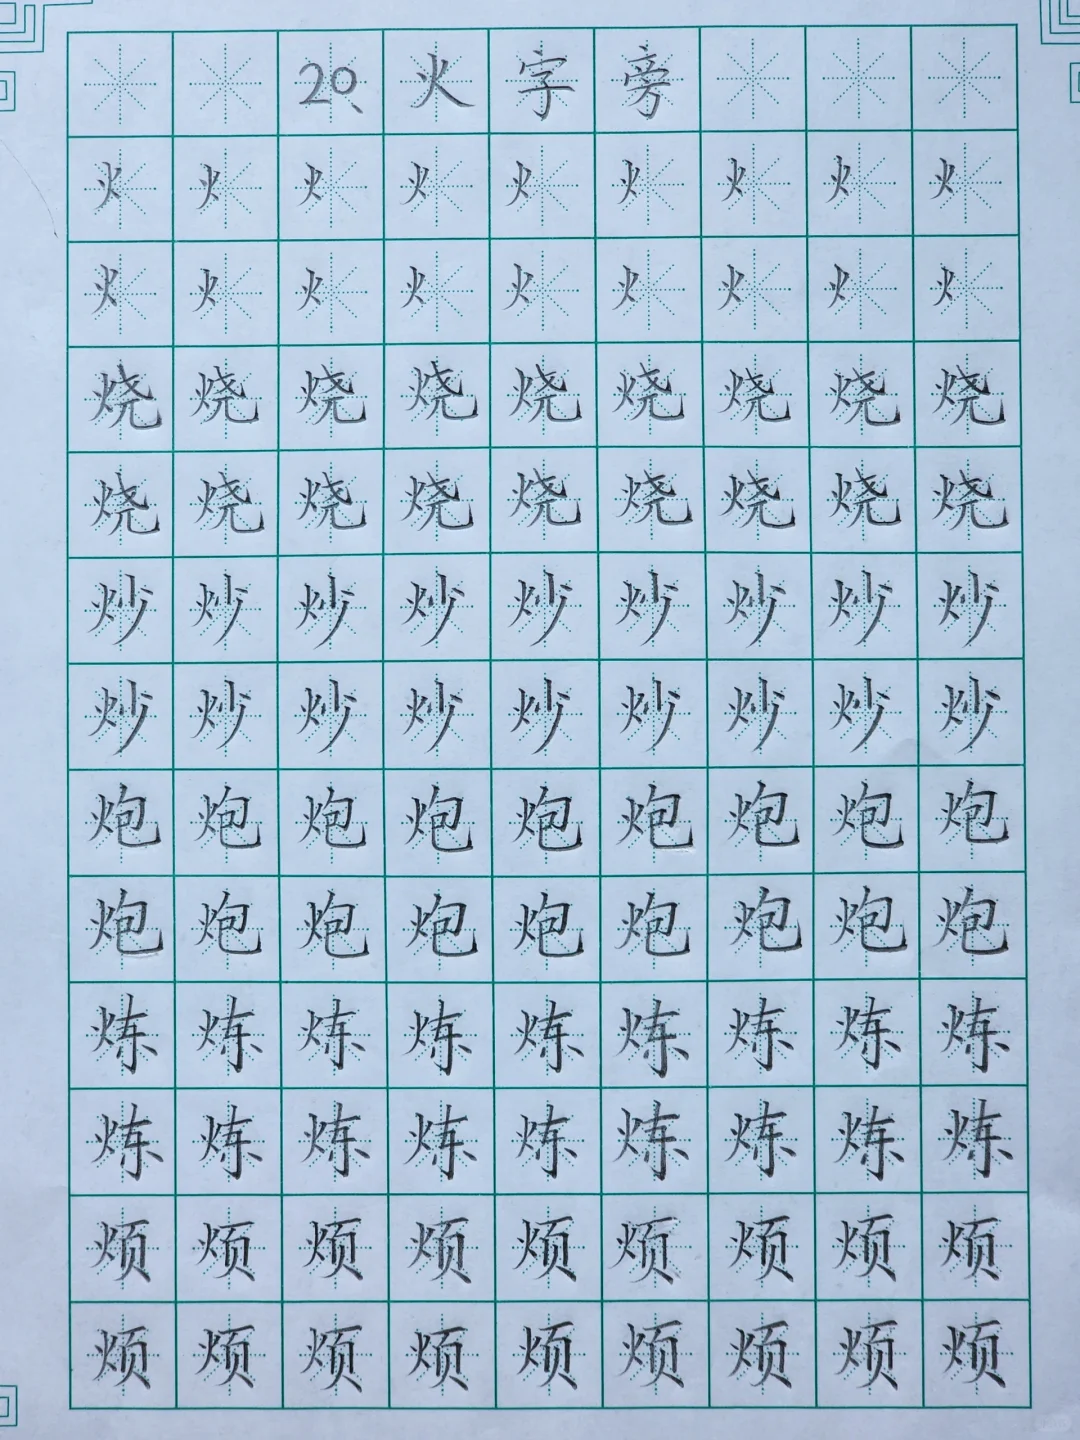 20、火字旁
火火火火火火火火火
火火火火火火火火火
烧烧烧烧烧烧烧烧烧
烧烧烧烧烧烧烧烧烧
炒炒炒炒炒炒炒炒炒
炒炒炒炒炒炒炒炒炒
炮炮炮炮炮炮炮炮炮
炮炮炮炮炮炮炮炮炮
炼炼炼炼炼炼炼炼炼
炼炼炼炼炼炼炼炼炼
烦烦烦烦烦烦烦烦烦
烦烦烦烦烦烦烦烦烦